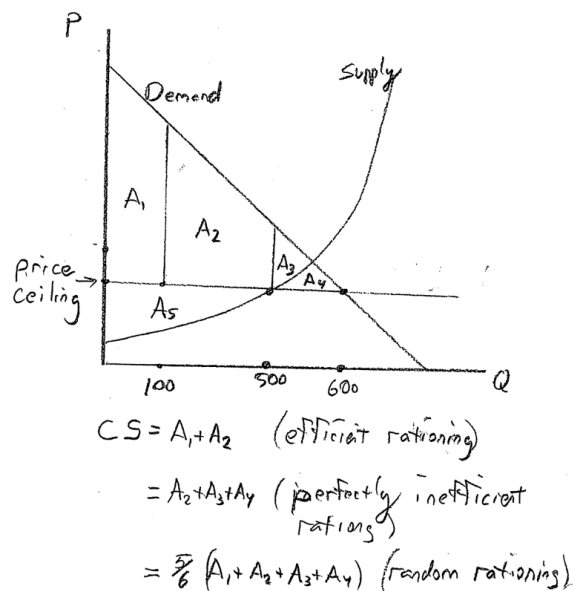 P
Supply
Demand
A₁
A₂
A₃
A₄
Price
ceiling
A₅
100
500
600
Q
CS = A₁+A₂ (efficient rationing)
= A₂+A₃+A₄ (perfectly inefficient
rationg)
= 5/6 (A₁+A₂+A₃+A₄) (random rationing)